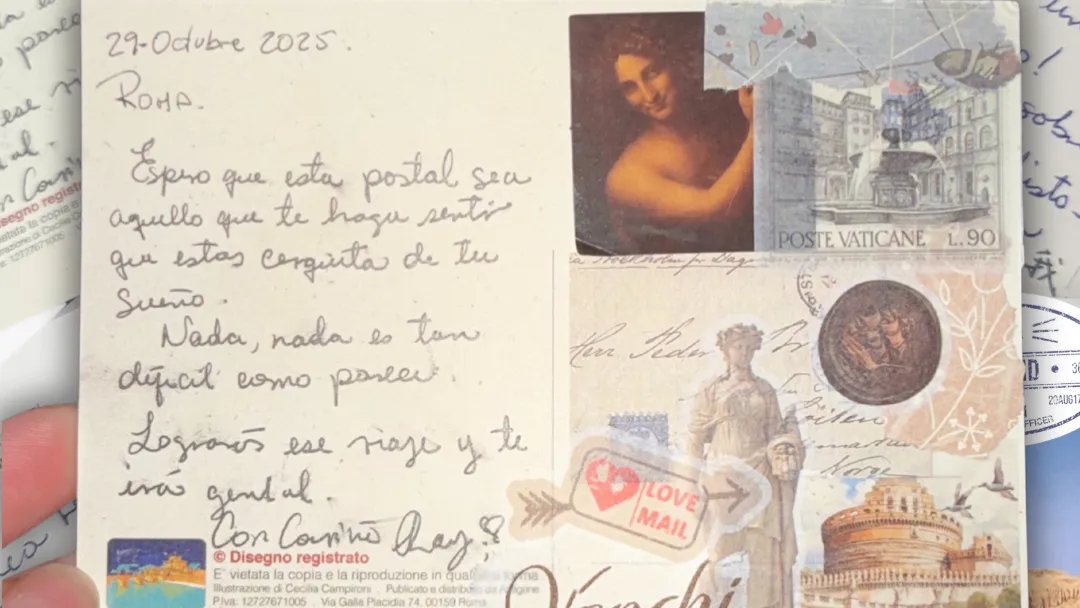 29-Octubre 2025.
ROMA.
Espero que esta postal sea
aquello que te haga sentir
que estas cerquita de tu
sueño.
Nada, nada es tan
difícil como parece.
Lograrás ese viaje y te
irá genial.
Con Cariño
© Disegno registrato
E' vietata la copia e la riproduzione in qualsiasi forma
Illustrazione di Cecilia Campironi . Publicato e distribuito da
P.Iva: 12727671005 . Via Galla Placidia 74, 00159 Roma
POSTE VATICANE L.90
Stockholm
Herr Peder
Norge
LOVE
MAIL
20AUG17
OFFICER